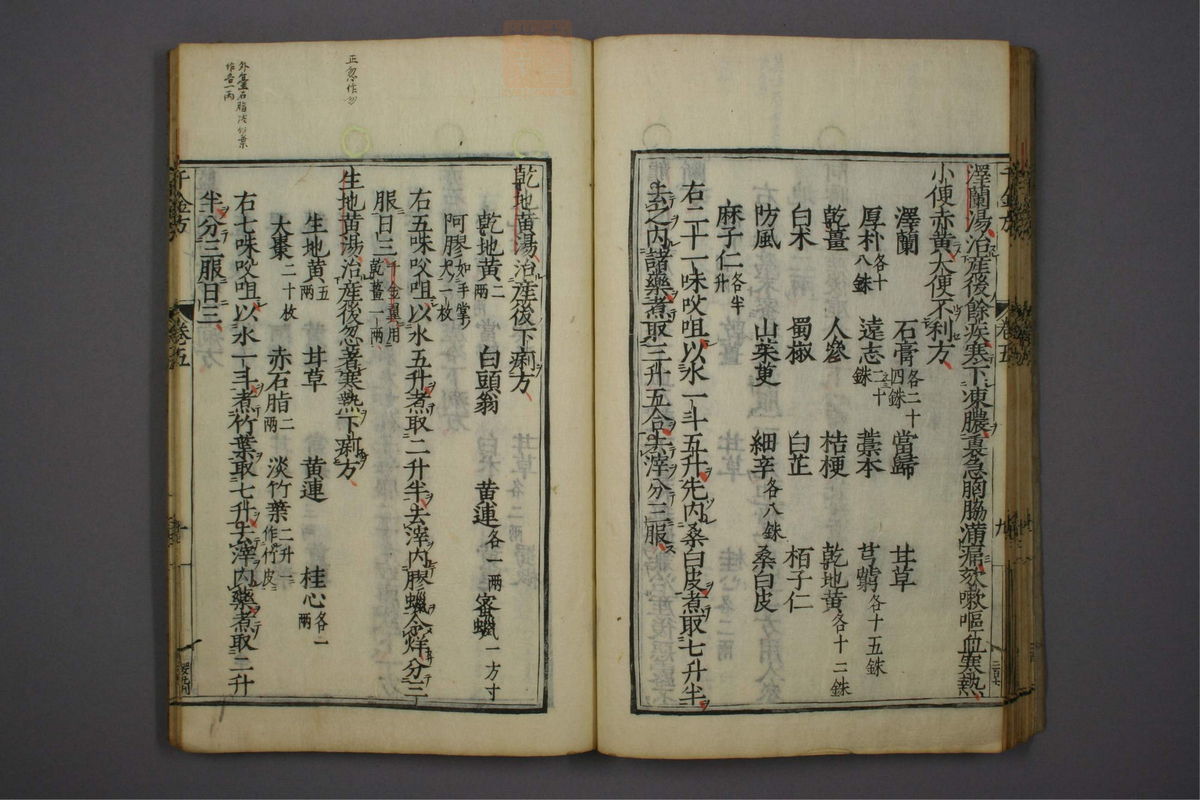 澤蘭湯治產後餘疾寒下凍膿裏急胸脇滿痛欬嗽嘔血寒熱
小便赤黃大便不利方
澤蘭 石膏各二十四銖 當歸 甘草
厚朴各十八銖 遠志二十銖 藁本 芎藭各十五銖
乾薑 人參 桔梗 乾地黃各十二銖
白朮 蜀椒 白芷 栢子仁
防風 山茱萸 細辛各八銖 桑白皮
麻子仁各半升
右二十一味㕮咀以水一斗五升先內桑白皮煮取七升半
去之內諸藥煮取三升五合去滓分三服
乾地黃湯治產後下痢方
乾地黃二兩 白頭翁 黃連各一兩 蜜蠟一方寸
阿膠如手掌大一枚
右五味㕮咀以水五升煮取二升半去滓內膠蠟令烊分三
服日三千金翼用乾薑一兩
生地黃湯治產後忽著寒熱下痢方
生地黃五兩 甘草 黃連 桂心各一兩
大棗二十枚 赤石脂二兩 淡竹葉二升一作竹皮
右七味㕮咀以水一斗煮竹葉取七升去滓內藥煮取二升
半分三服日三
千金方 卷五
正忽作勿